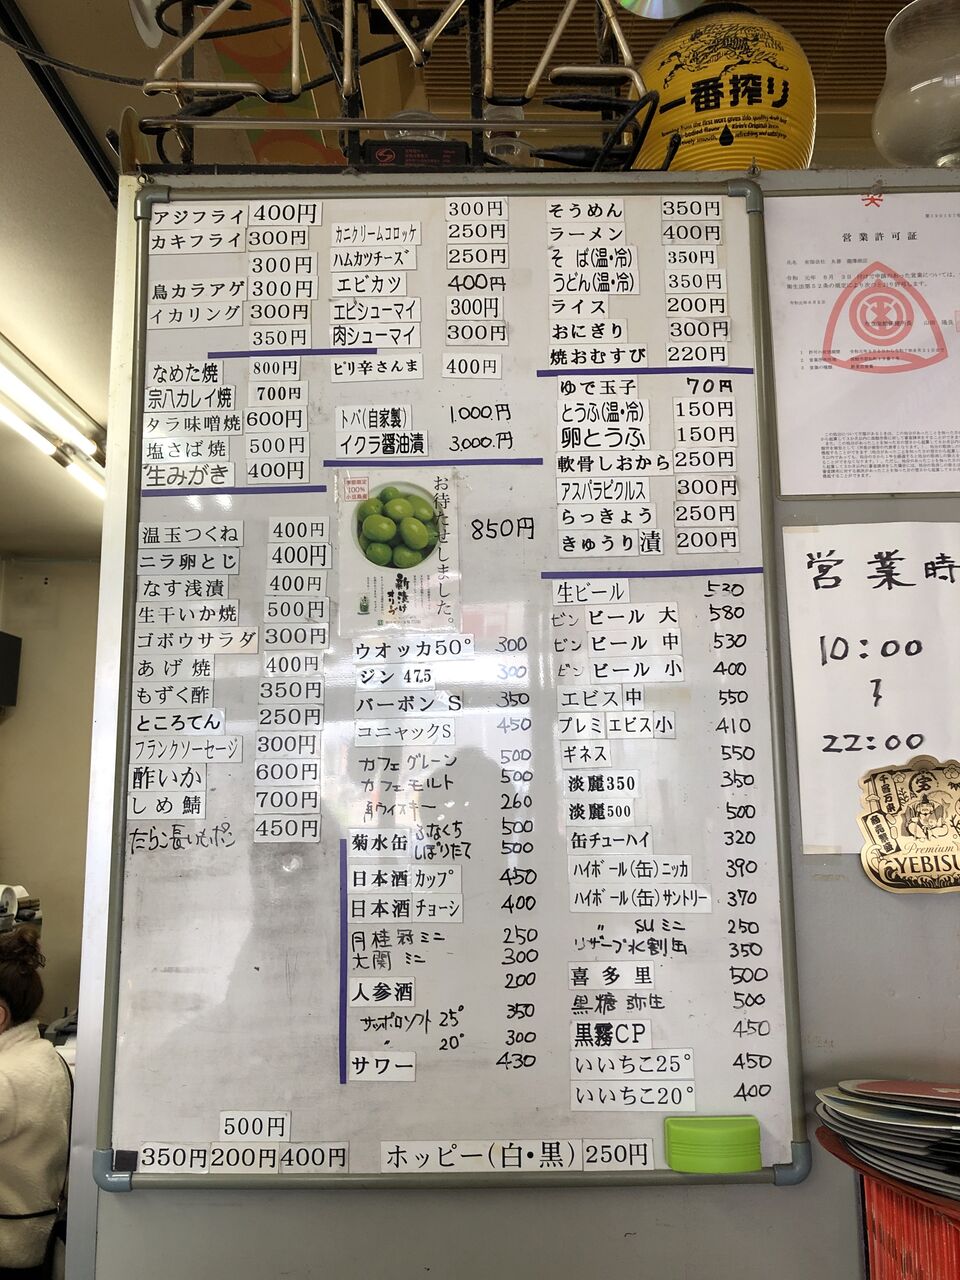 一番搾り
アジフライ 400円
カキフライ 300円
300円
鳥カラアゲ 300円
イカリング 300円
350円
なめた焼 800円
宗八カレイ焼 700円
タラ味噌焼 600円
塩さば焼 500円
生みがき 400円
温玉つくね 400円
ニラ卵とじ 400円
なす浅漬 400円
生干いか焼 500円
ゴボウサラダ 300円
あげ焼 400円
もずく酢 350円
ところてん 250円
フランクソーセージ 300円
酢いか 600円
しめ鯖 700円
たらこ長いもポン 450円
300円
カニクリームコロッケ 250円
ハムカツチーズ 250円
エビカツ 400円
エビシューマイ 300円
肉シューマイ 300円
ピリ辛さんま 400円
トバ(自家製) 1,000円
イクラ醤油漬 3,000円
お待たせしました。
新漬け
オリーブ
850円
ウオッカ50° 300
ジン 47.5 300
バーボン S 350
コニャックS 450
カフェグレーン 500
カフェモルト 500
角ウイスキー 260
菊水缶 ふなぐち 500
しぼりたて 500
日本酒 カップ 450
日本酒 チョーシ 400
月桂冠ミニ 250
大関 ミニ 300
人参酒 200
サッポロソフト 25° 350
〃 20° 300
サワー 430
そうめん 350円
ラーメン 400円
そば(温・冷) 350円
うどん(温・冷) 350円
ライス 200円
おにぎり 300円
焼おむすび 220円
ゆで玉子 70円
とうふ(温・冷) 150円
卵とうふ 150円
軟骨しおから 250円
アスパラピクルス 300円
らっきょう 250円
きゅうり漬 200円
生ビール 530
ビンビール 大 580
ビンビール 中 530
ビンビール 小 400
エビス中 550
プレミエビス小 410
ギネス 550
淡麗350 350
淡麗500 500
缶チューハイ 320
ハイボール(缶)ニッカ 390
ハイボール(缶)サントリー 370
〃 SUミニ 250
リザーブ水割缶 350
喜多里 500
黒糖 弥生 500
黒霧CP 450
いいちこ25° 450
いいちこ20° 400
500円
350円 200円 400円
ホッピー(白・黒) 250円
営業許可証
営業時
10:00
22:00
千客万来
商売繁盛
Premium
YEBISU